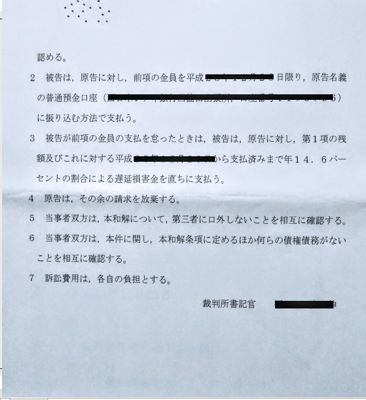 認める。
2 被告は,原告に対し,前項の金員を平成 日限り,原告名義
の普通預金口座( )
に振り込む方法で支払う。
3 被告が前項の金員の支払を怠ったときは,被告は,原告に対し,第1項の残
額及びこれに対する平成 から支払済みまで年14.6パー
セントの割合による遅延損害金を直ちに支払う。
4 原告は,その余の請求を放棄する。
5 当事者双方は,本和解について,第三者に口外しないことを相互に確認する。
6 当事者双方は,本件に関し,本和解条項に定めるほか何らの債権債務がない
ことを相互に確認する。
7 訴訟費用は,各自の負担とする。
裁判所書記官